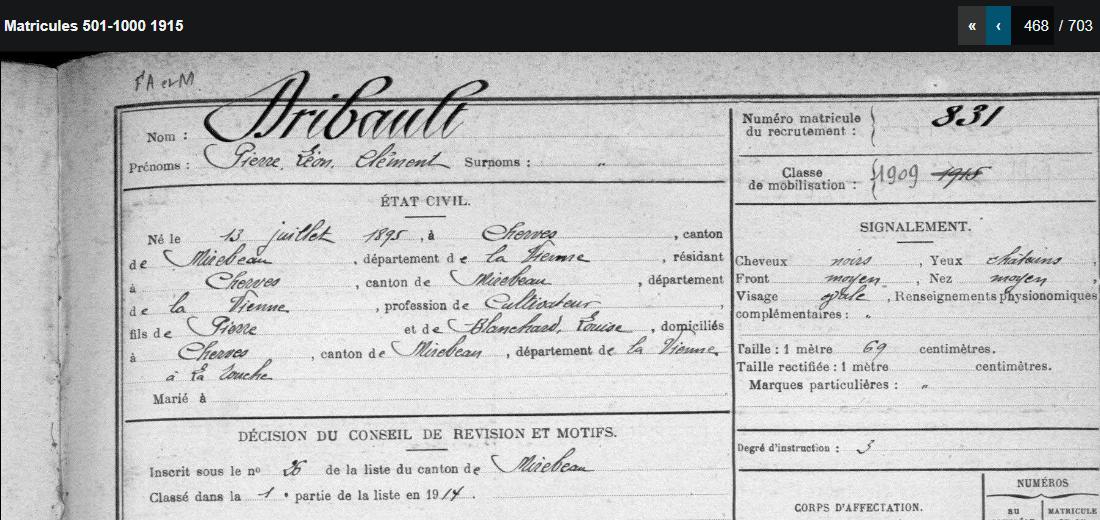 Matricules 501-1000 1915
« ‹ 468 / 703
FA et M.
Nom : Aribault
Prénoms : Pierre, Léon, Clément Surnoms : "
Numéro matricule du recrutement : 831
Classe de mobilisation : 1909 1915
ÉTAT CIVIL.
Né le 13 juillet 1895, à Cherves, canton
de Mirebeau, département de la Vienne, résidant
à Cherves, canton de Mirebeau, département
de la Vienne, profession de Cultivateur,
fils de Pierre et de Blanchard, Louise, domiciliés
à Cherves, canton de Mirebeau, département de la Vienne.
à La Touche
Marié à
SIGNALEMENT.
Cheveux noirs, Yeux châtains,
Front moyen, Nez moyen,
Visage ovale, Renseignements physionomiques
complémentaires : "
Taille : 1 mètre 69 centimètres.
Taille rectifiée : 1 mètre centimètres.
Marques particulières : "
Degré d'instruction : 3
DÉCISION DU CONSEIL DE REVISION ET MOTIFS.
Inscrit sous le nº 26 de la liste du canton de Mirebeau
Classé dans la 1e partie de la liste en 1914.
CORPS D'AFFECTATION.
NUMÉROS
au MATRICULE